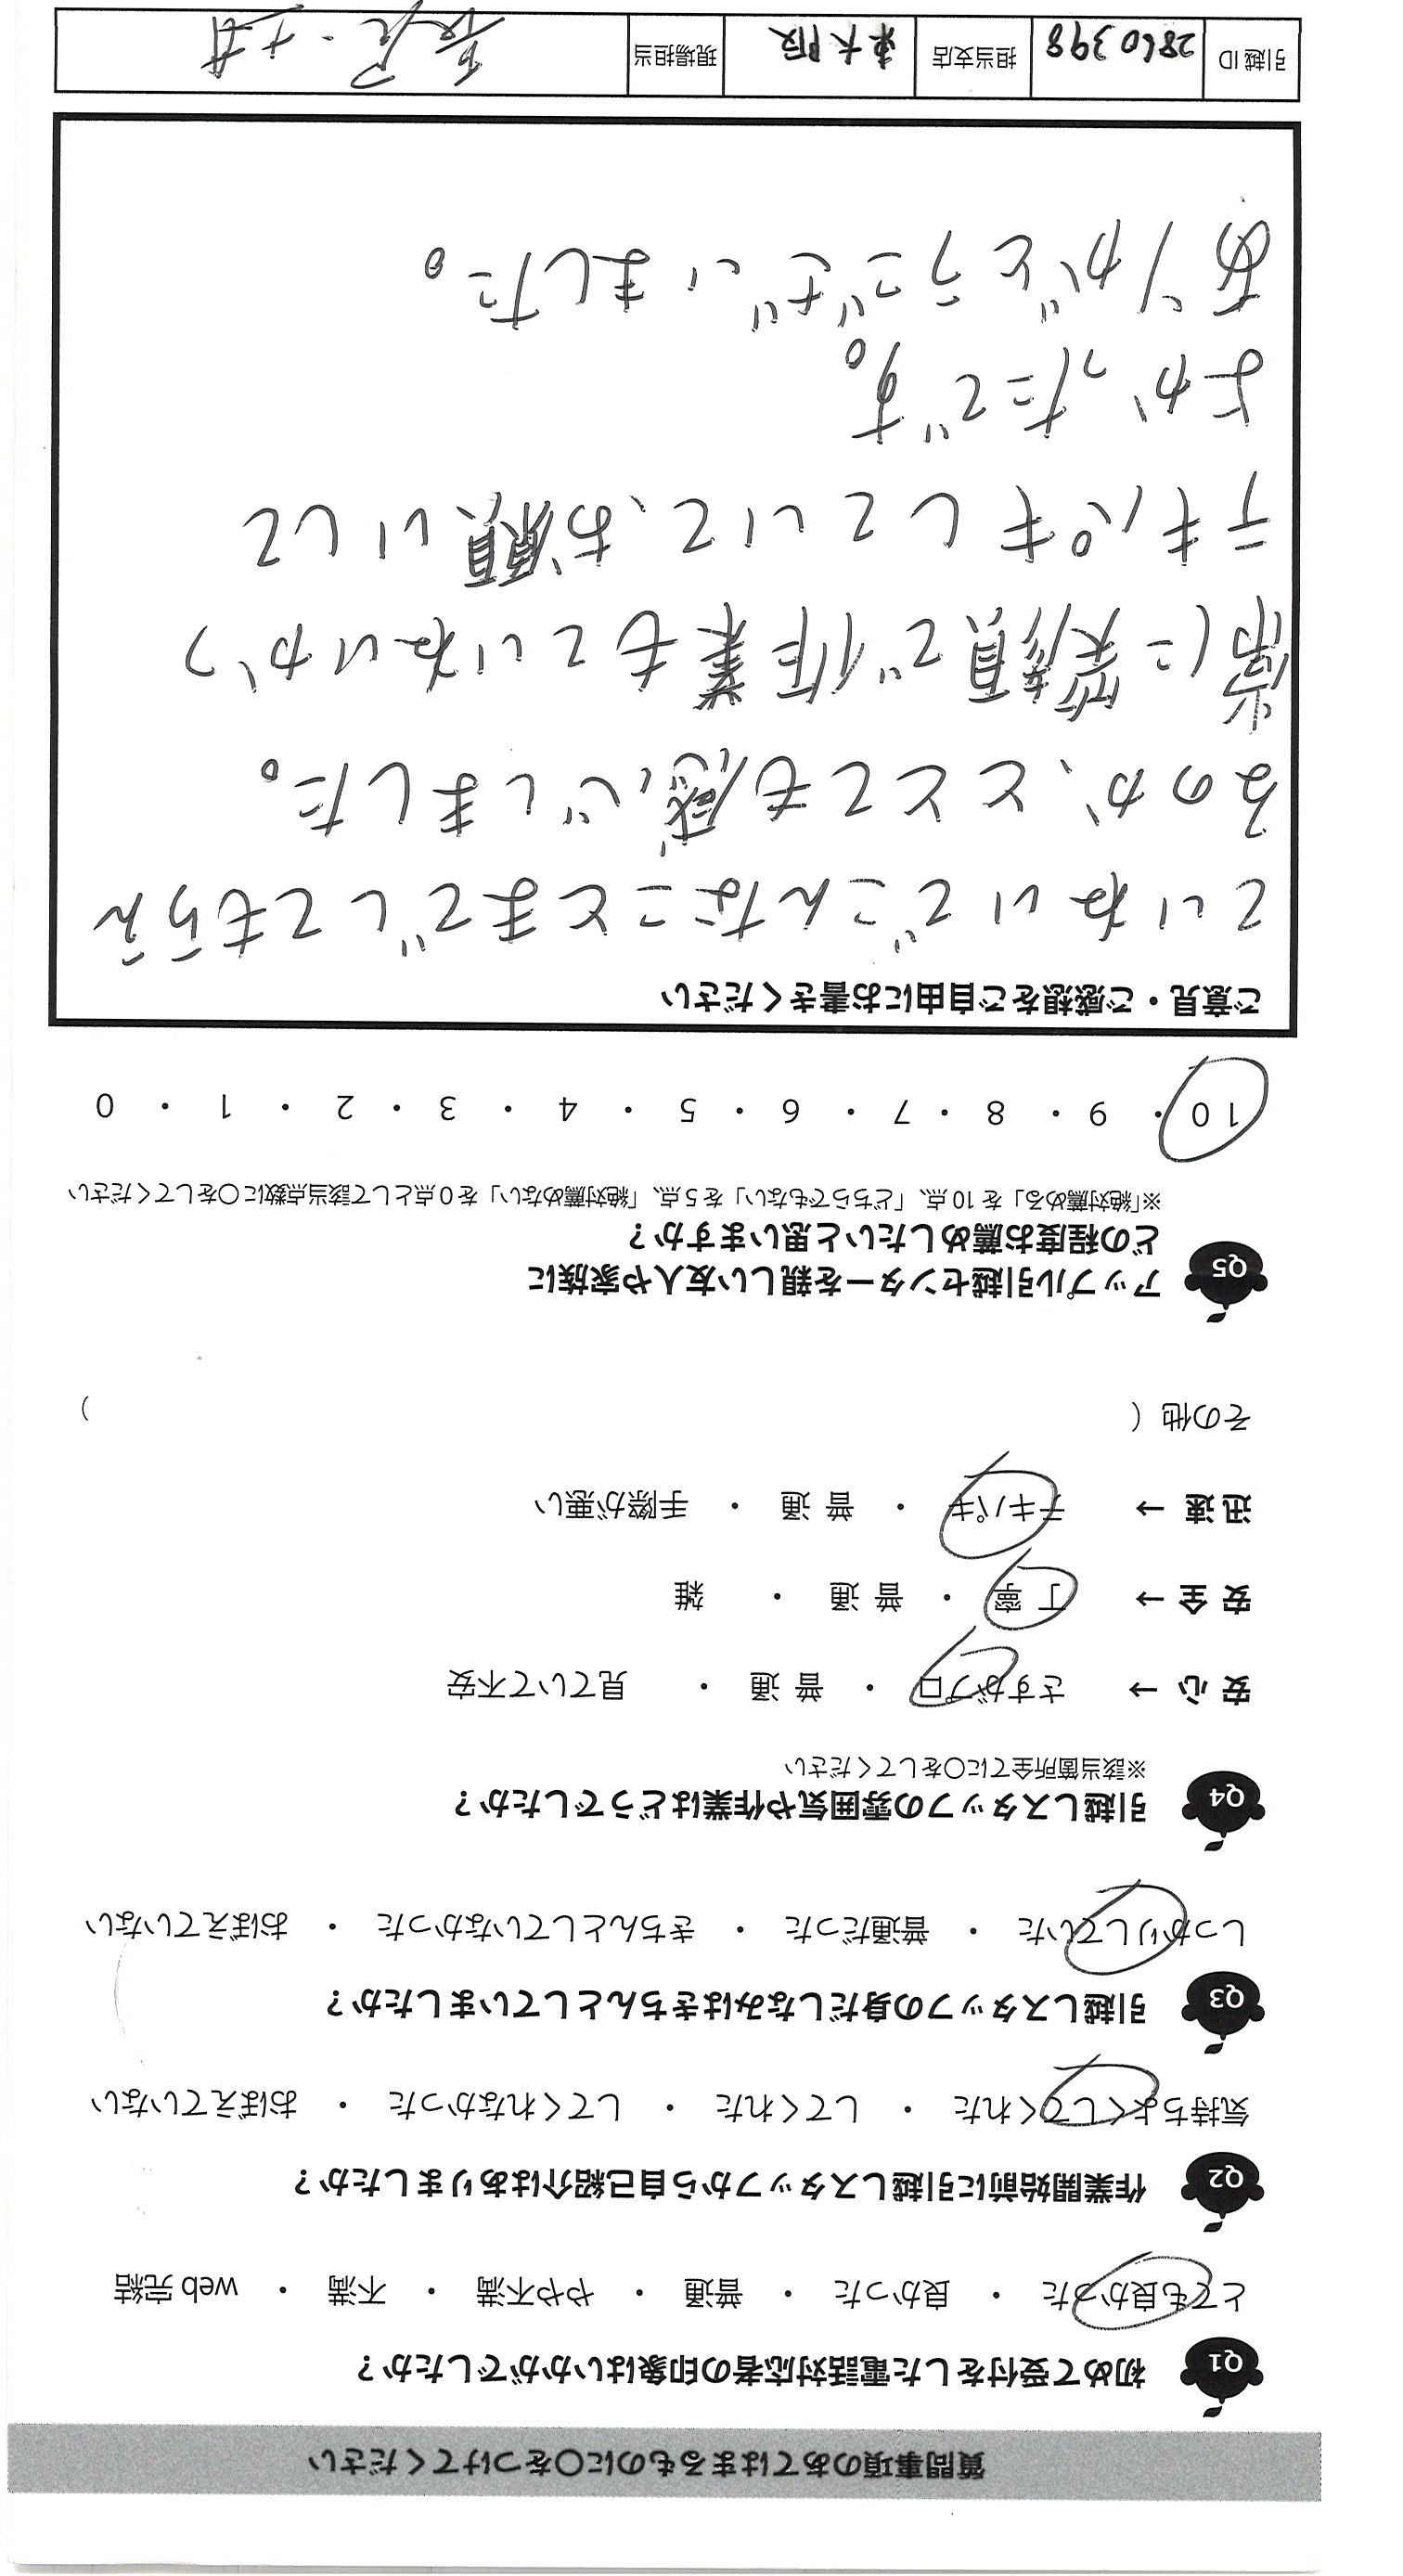 質問事項のあてはまるものに○をつけてください
Q1 初めて受付をした電話対応者の印象はいかがでしたか？
とても良かった ・ 良かった ・ 普通 ・ やや不満 ・ 不満 ・ web完結
Q2 作業開始前に引越しスタッフから自己紹介はありましたか？
気持ちよくしてくれた ・ してくれた ・ してくれなかった ・ おぼえていない
Q3 引越しスタッフの身だしなみはきちんとしていましたか？
しっかりしていた ・ 普通だった ・ きちんとしていなかった ・ おぼえていない
Q4 引越しスタッフの雰囲気や作業はどうでしたか？
※該当箇所全てに○をしてください
安心 → さすがプロ ・ 普通 ・ 見ていて不安
安全 → 丁寧 ・ 普通 ・ 雑
迅速 → テキパキ ・ 普通 ・ 手際が悪い
その他（ ）
Q5 アップル引越センターを親しい友人や家族に
どの程度お薦めしたいと思いますか？
※「絶対薦める」を10点、「どちらでもない」を5点、「絶対薦めない」を0点として該当点数に○をしてください
10 ・ 9 ・ 8 ・ 7 ・ 6 ・ 5 ・ 4 ・ 3 ・ 2 ・ 1 ・ 0
ご意見・ご感想をご自由にお書きください
ていねいでこんなことまでしてもらえ
るのか、ととても感じしました。
常に笑顔で作業もていねいかつ
テキパキしていて、お願いして
よかったです。
ありがとうございました。
引越ID 2860398 担当支店 東大阪 現場担当